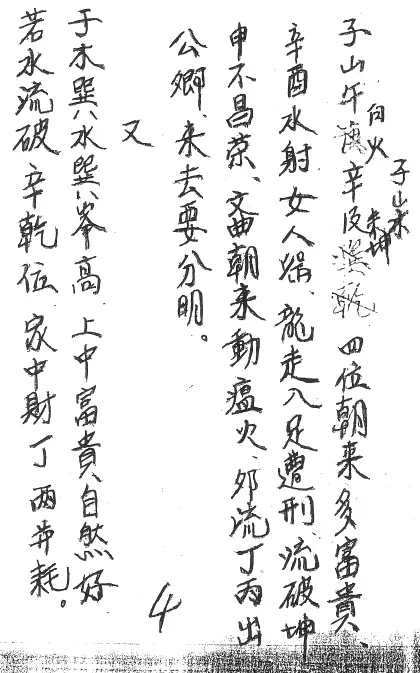 子山午向火 辛 四位朝来多富貴、
子山水 未坤
辛酉水射女人媱、龍走八足遭刑、流破坤
申不昌荣、文曲朝来動瘟火、邪流丁丙出
公卿、来去要分明。
又
于木巽水巽峯高 上中富貴自然好
若水流破辛乾位 家中財丁两弄耗。
4